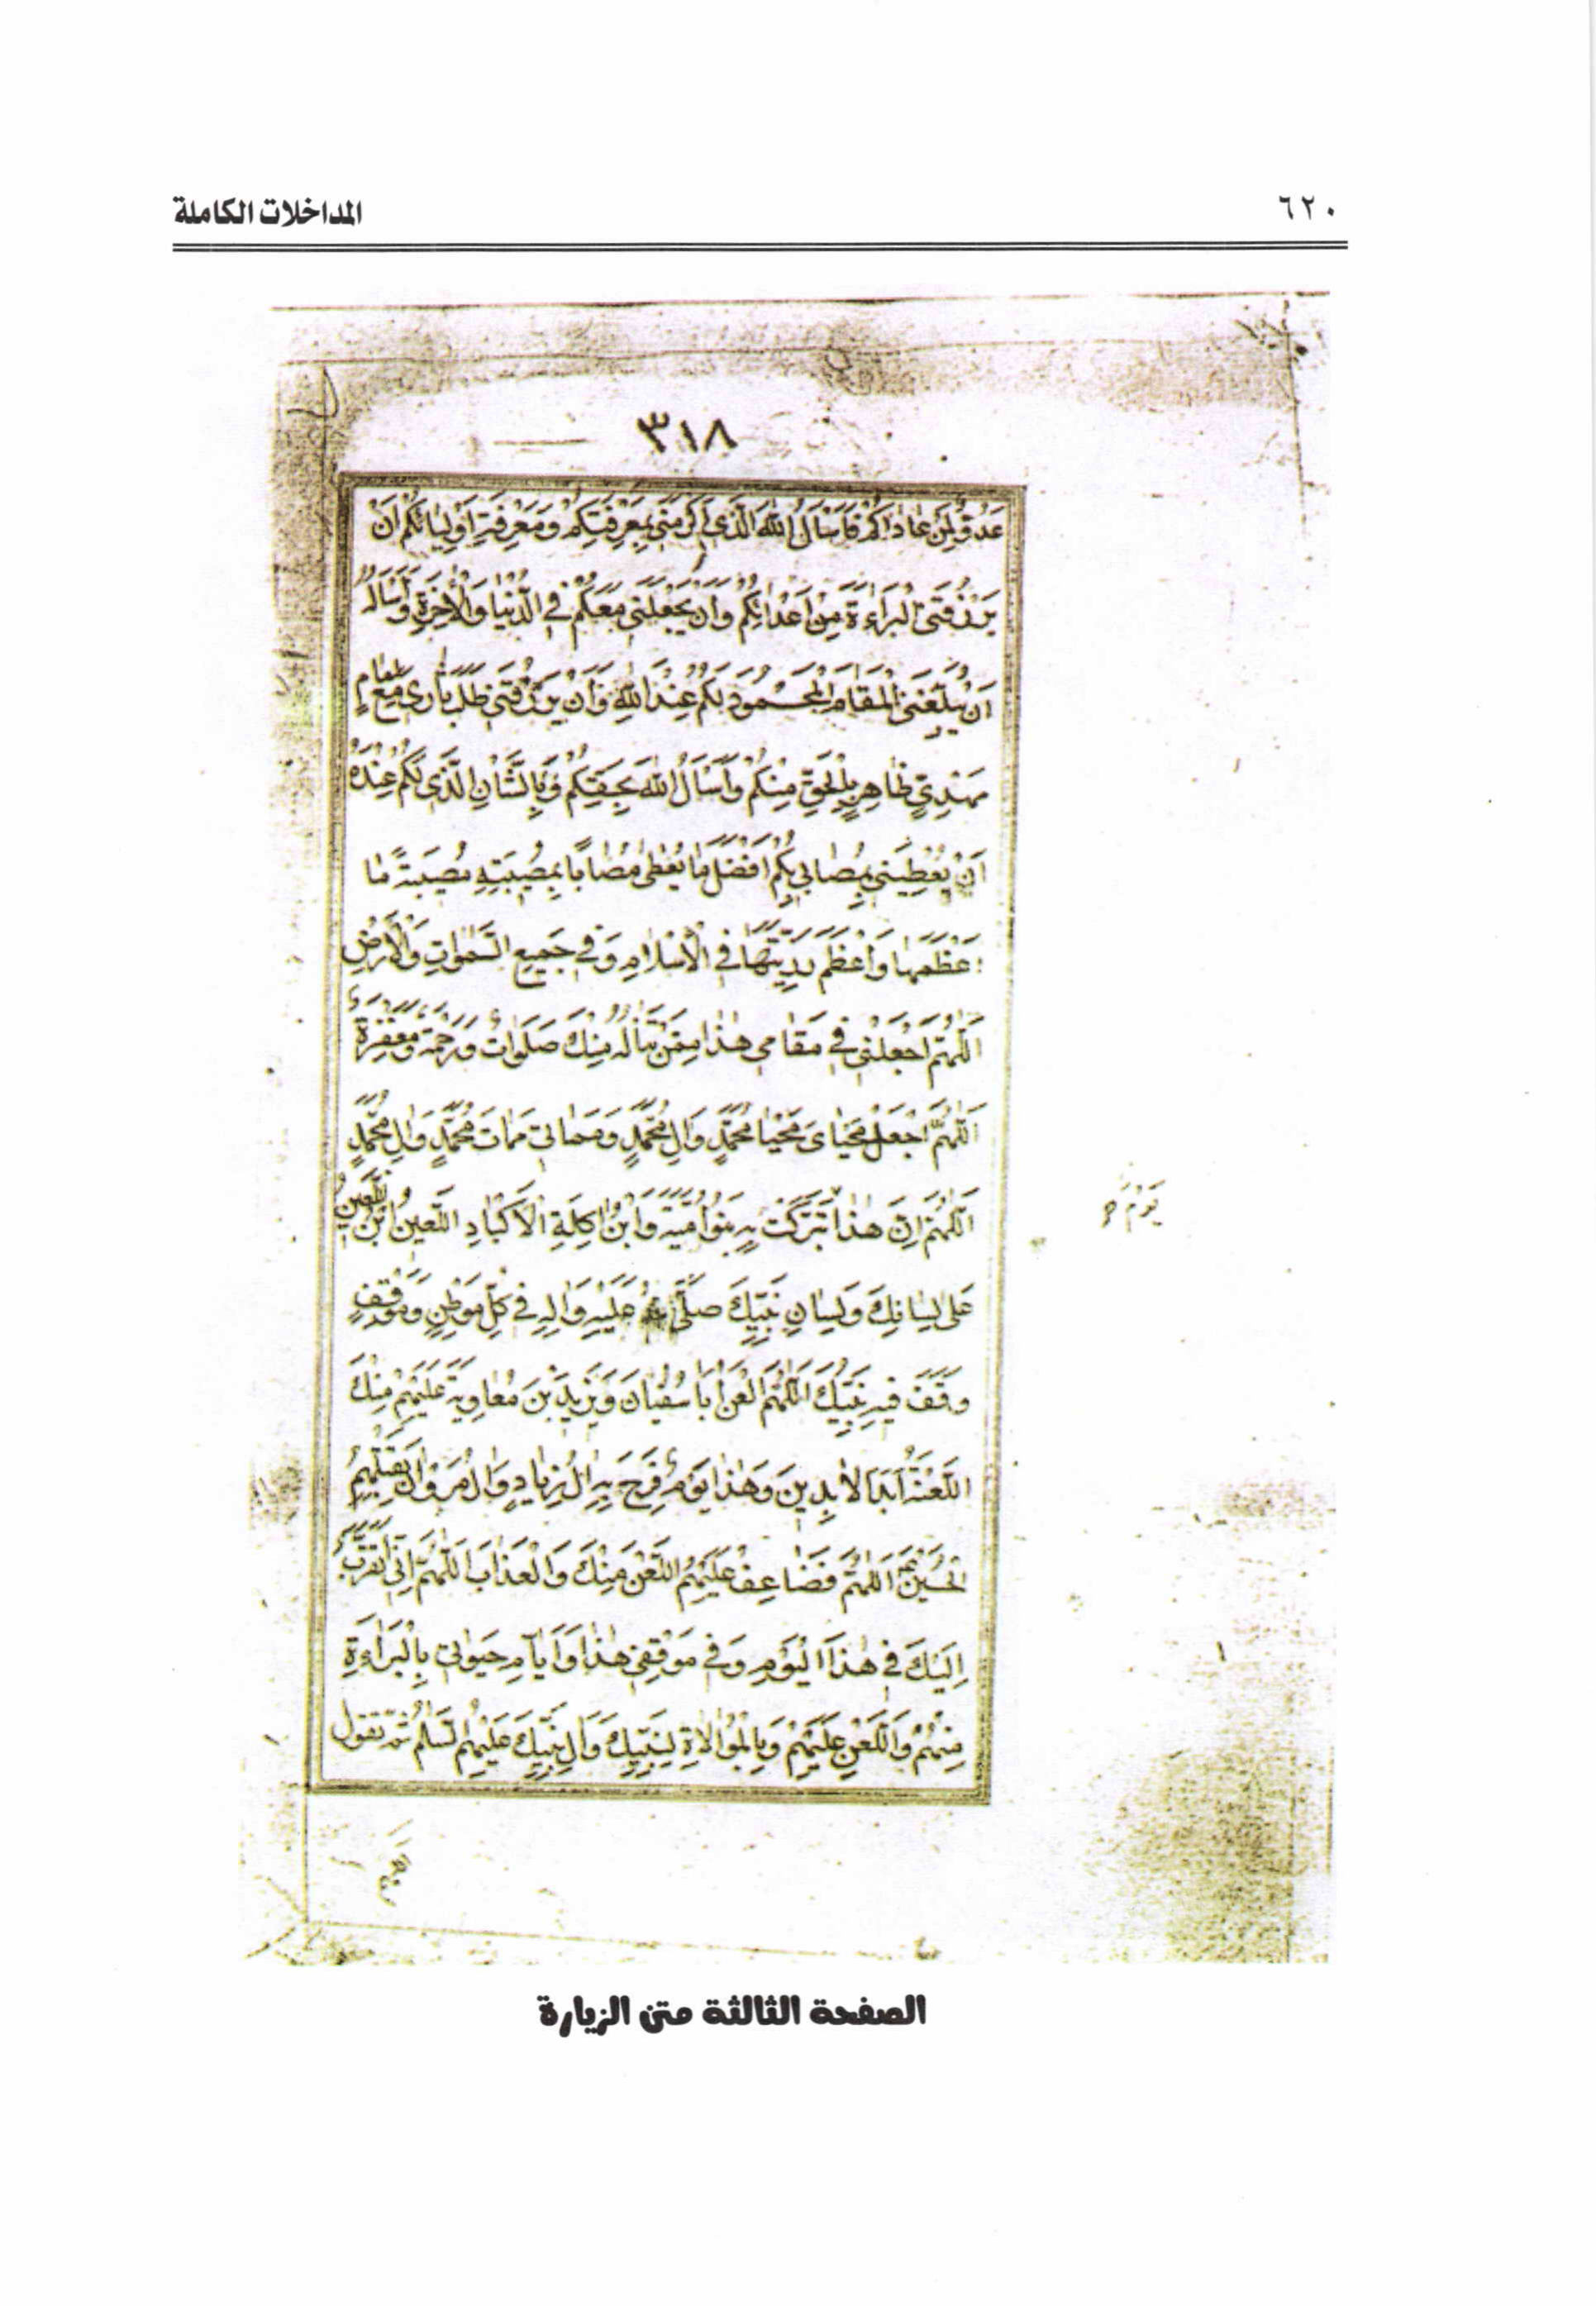 المداخلات الكاملة
٦٢٠
٣١٨
عَدُوٌّ لِمَنْ عَادَاكُمْ فَاَسْأَلُ اللّٰهَ الَّذِي اَكْرَمَنِي بِمَعْرِفَتِكُمْ وَمَعْرِفَةِ اَوْلِيَائِكُمْ اَنْ
يَرْزُقَنِي الْبَرَاءَةَ مِنْ اَعْدَائِكُمْ وَاَنْ يَجْعَلَنِي مَعَكُمْ فِي الدُّنْيَا وَالْاٰخِرَةِ وَاَسْأَلُهُ
اَنْ يُبَلِّغَنِي الْمَقَامَ الْمَحْمُودَ لَكُمْ عِنْدَ اللّٰهِ وَاَنْ يَرْزُقَنِي طَلَبَ ثَارِي مَعَ اِمَامٍ
مَهْدِيٍّ ظَاهِرٍ بِالْحَقِّ مِنْكُمْ وَاَسْأَلُ اللّٰهَ بِحَقِّكُمْ وَبِالشَّأْنِ الَّذِي لَكُمْ عِنْدَهُ
اَنْ يُعْطِيَنِي بِمُصَابِي بِكُمْ اَفْضَلَ مَا يُعْطِي مُصَابًا بِمُصِيبَتِهِ مُصِيبَةً مَا
اَعْظَمَهَا وَاَعْظَمَ رَزِيَّتَهَا فِي الْاِسْلَامِ وَفِي جَمِيعِ السَّمٰوَاتِ وَالْاَرْضِ
اَللّٰهُمَّ اجْعَلْنِي فِي مَقَامِي هٰذَا مِمَّنْ تَنَالُهُ مِنْكَ صَلَوَاتٌ وَرَحْمَةٌ وَمَغْفِرَةٌ
اَللّٰهُمَّ اجْعَلْ مَحْيَايَ مَحْيَا مُحَمَّدٍ وَاٰلِ مُحَمَّدٍ وَمَمَاتِي مَمَاتَ مُحَمَّدٍ وَاٰلِ مُحَمَّدٍ
اَللّٰهُمَّ اِنَّ هٰذَا تَبَرَّكَتْ بِهِ بَنُو اُمَيَّةَ وَابْنُ اٰكِلَةِ الْاَكْبَادِ اللَّعِينُ ابْنُ اللَّعِينِ
يَوْمٌ
عَلٰى لِسَانِكَ وَلِسَانِ نَبِيِّكَ صَلَّى عَلَيْهِ وَاٰلِهِ فِي كُلِّ مَوْطِنٍ وَمَوْقِفٍ
وَقَفَ فِيهِ نَبِيُّكَ اَللّٰهُمَّ الْعَنْ اَبَا سُفْيَانَ وَيَزِيدَ بْنَ مُعَاوِيَةَ عَلَيْهِمْ مِنْكَ
اللَّعْنَةُ اَبَدَ الْاٰبِدِينَ وَهٰذَا يَوْمٌ فَرِحَ بِهِ اٰلُ زِيَادٍ وَاٰلُ مَرْوَانَ بِقَتْلِهِمُ
الْحُسَيْنَ اَللّٰهُمَّ فَضَاعِفْ عَلَيْهِمُ اللَّعْنَ مِنْكَ وَالْعَذَابَ اَللّٰهُمَّ اِنِّي اَتَقَرَّبُ
اِلَيْكَ فِي هٰذَا الْيَوْمِ وَفِي مَوْقِفِي هٰذَا وَاَيَّامِ حَيٰوتِي بِالْبَرَاءَةِ
مِنْهُمْ وَاللَّعْنِ عَلَيْهِمْ وَبِالْمُوَالَاةِ لِنَبِيِّكَ وَاٰلِ نَبِيِّكَ عَلَيْهِمُ السَّلَامُ ثُمَّ تقول
اللهم
الصفحة الثالثة متن الزيارة